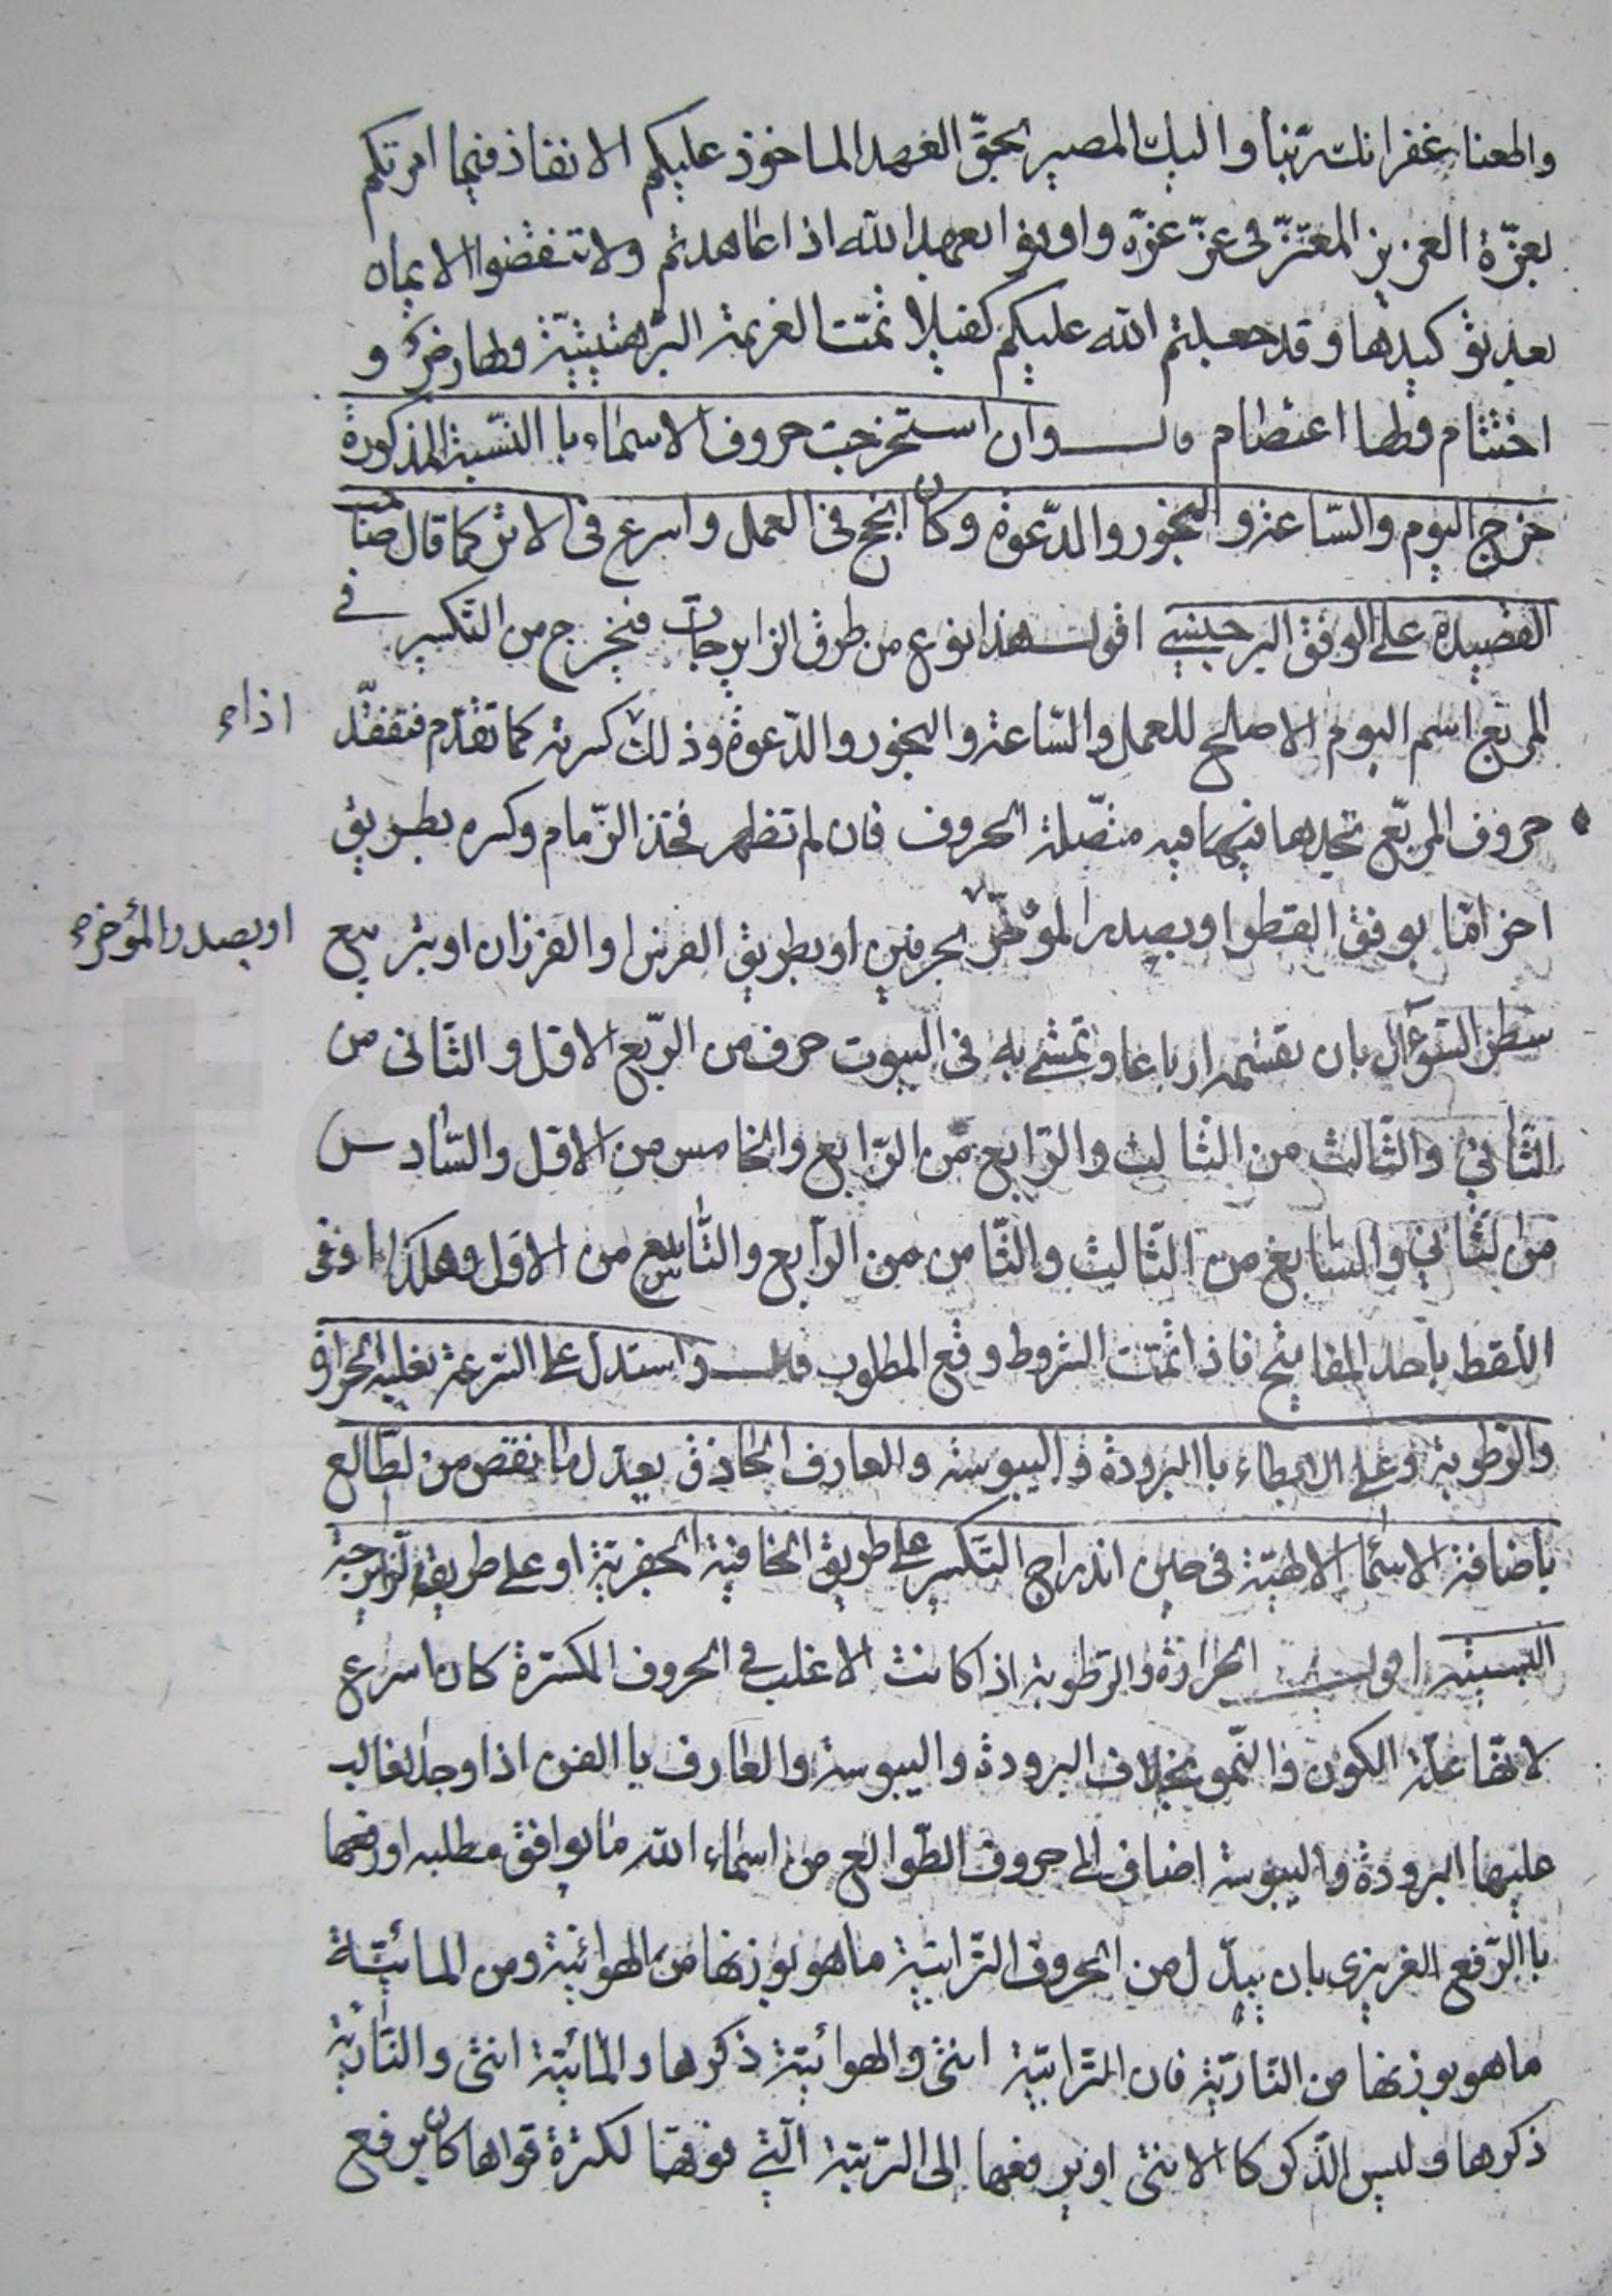 واطعنا غفرانك ربّنا واليك المصير بحقّ العهد الماخوذ عليكم الا نفاذ فيما امرتكم
بعزّة العزيز المعتزّ فى عزّ عزّه واوفوا بعهد الله اذا عاهدتم ولا تنقضوا الايمان
بعد توكيدها وقد جعلتم الله عليكم كفيلا تمّت العزيمة البرهتيتيّة ولها و
اختتام ولها اعتصام قال وان استخرجت حروف الاسماء با النّسبة المذكورة
خرج اليوم والسّاعة والبخور والدّعوة وكان انجح فى العمل واسرع فى الاثر كما قال صاحب
القصيدة على الوفق البرجيسي اقول هذا نوع من طرق الزايرجات فيخرج من التكسير في
المربّع اسم اليوم الاصلح للعمل والسّاعة والبخور والدّعوة وذلك كسرته كما تقدّم فتفقّد
اذاء
حروف المربّع تجدها فيه متّصلة الحروف فان لم تظهر فخذ الزّمام وكسره بطريق
اخر امّا بوفق القطّ او بصدر المؤخّر بحرفين او بطريق الفرس او الفرزان او بتربيع
او بصدر المؤخره
سطر السّوءال بان تقسمه ارباعا وتمشي به فى البيوت حرف من الرّبع الاوّل والثّانى من
الثّاني والثّالث من الثالث والرّابع من الرّابع والخامس من الاوّل والسّادس
من الثّاني والسّابع من الثّالث والثّامن من الرّابع والتّاسع من الاوّل وهكذا او فى
اللّقط باحد المفاتيح فاذا تمّت الشروط وقع المطلوب قال واستدل على السّرعة بغلبة الحرارة
والرّطوبة وعلى الابطاء با البرودة واليبوسة والعارف الحاذق يعدل ما نقص من الطّالع
باضافة الاسماء الالهيّة فى حين اندراج التّكسير على طريق الخافية الجفريّة او على طريق الزّايرجة
السبتيه اقول الحرارة والرّطوبة اذا كانت الاغلب فى الحروف المكسّرة كان اسرع
لانّها علّة الكون والنّمو بخلاف البرودة واليبوسة والعارف با الفن اذا وجد الغالب
عليها البرودة واليبوسة اضاف الى حروف الطّوالع من اسماء الله ما يوافق مطلبه او رفعها
با الرّفع الغريزى بان يبدّل من الحروف التّرابيّة ما هو بوزنها من الهوائيّة ومن المائيّة
ما هو بوزنها من النّاريّة فان التّرابيّة انثى والهوائيّة ذكرها والمائيّة انثى والنّاريّة
ذكرها وليس الذّكر كا الانثى او يرفعها الى الرّتبة الّتي فوقها لكثرة قواها كان يرفع